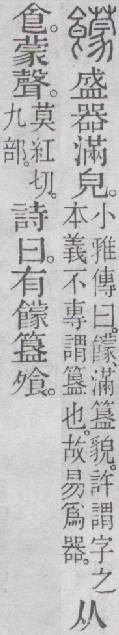 饛盛器滿皃。小雅傳曰。饛、滿簋貌。許謂字之
本義不專謂簋也。故易爲器。从
食。蒙聲。莫紅切。
九部。詩曰。有饛簋飧。